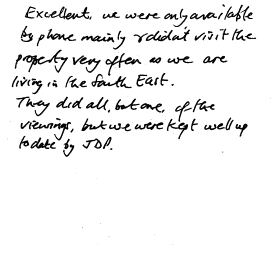 Excellent, we were only available
by phone mainly & didn't visit the
property very often as we are
living in the South East.
They did all, but one, of the
viewings, but we were kept well up
to date by JDP.